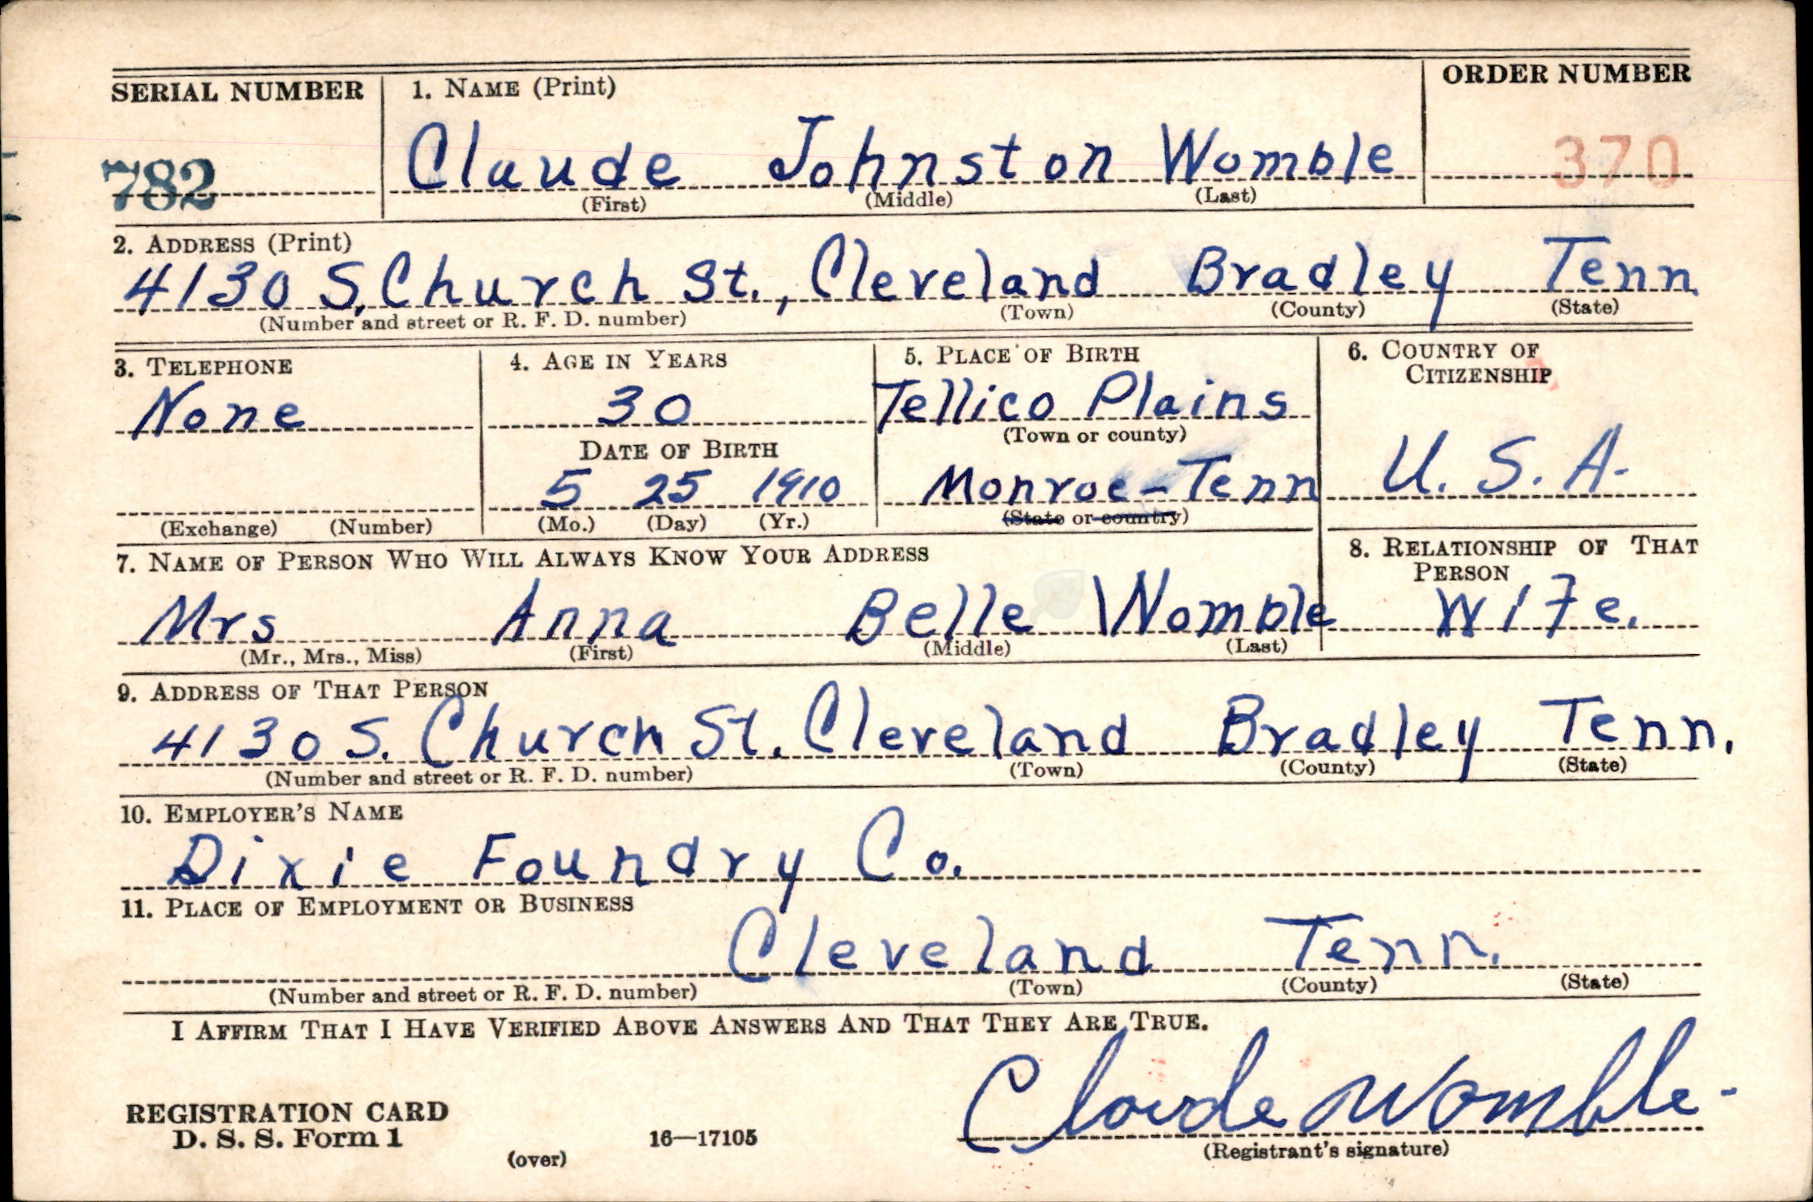 SERIAL NUMBER 1. NAME (Print) ORDER NUMBER
782 Claude Johnston Womble 370
(First) (Middle) (Last)
2. ADDRESS (Print)
4130 S. Church St., Cleveland Bradley Tenn.
(Number and street or R. F. D. number) (Town) (County) (State)
3. TELEPHONE 4. AGE IN YEARS 5. PLACE OF BIRTH 6. COUNTRY OF CITIZENSHIP
None 30 Tellico Plains
(Town or county)
DATE OF BIRTH
5 25 1910 Monroe - Tenn U. S. A.
(Exchange) (Number) (Mo.) (Day) (Yr.) (State or country)
7. NAME OF PERSON WHO WILL ALWAYS KNOW YOUR ADDRESS 8. RELATIONSHIP OF THAT PERSON
Mrs Anna Belle Womble Wife.
(Mr., Mrs., Miss) (First) (Middle) (Last)
9. ADDRESS OF THAT PERSON
4130 S. Church St. Cleveland Bradley Tenn.
(Number and street or R. F. D. number) (Town) (County) (State)
10. EMPLOYER'S NAME
Dixie Foundry Co.
11. PLACE OF EMPLOYMENT OR BUSINESS
Cleveland Tenn.
(Number and street or R. F. D. number) (Town) (County) (State)
I AFFIRM THAT I HAVE VERIFIED ABOVE ANSWERS AND THAT THEY ARE TRUE.
Claude Womble
REGISTRATION CARD
D. S. S. Form 1 16—17105
(over) (Registrant's signature)